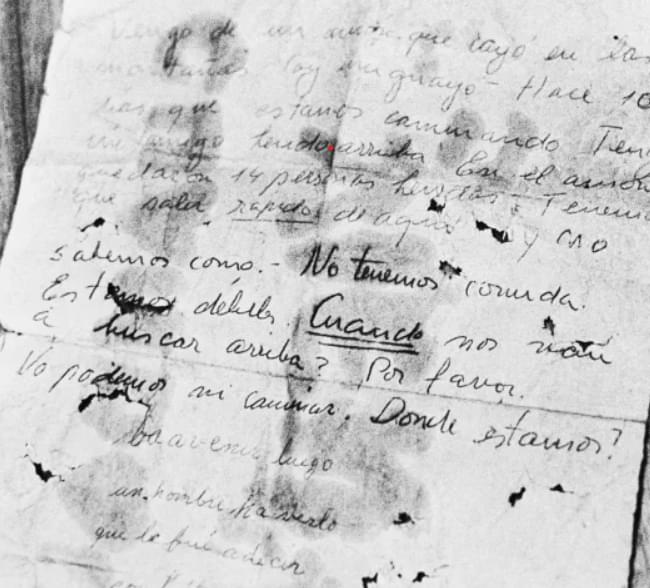 Vengo de un avión que cayó en las
montañas. Soy uruguayo - Hace 10
días que estamos caminando Ten
un amigo herido arriba. En el avión
quedaron 14 personas heridas. Tenemo
que salir rápido de aquí y no
sabemos como.- No tenemos comida.
Estamos débiles. Cuando nos van
a buscar arriba? Por favor.
No podemos ni caminar. Donde estamos?
va a venir luego
un hombre
que le fué a decir